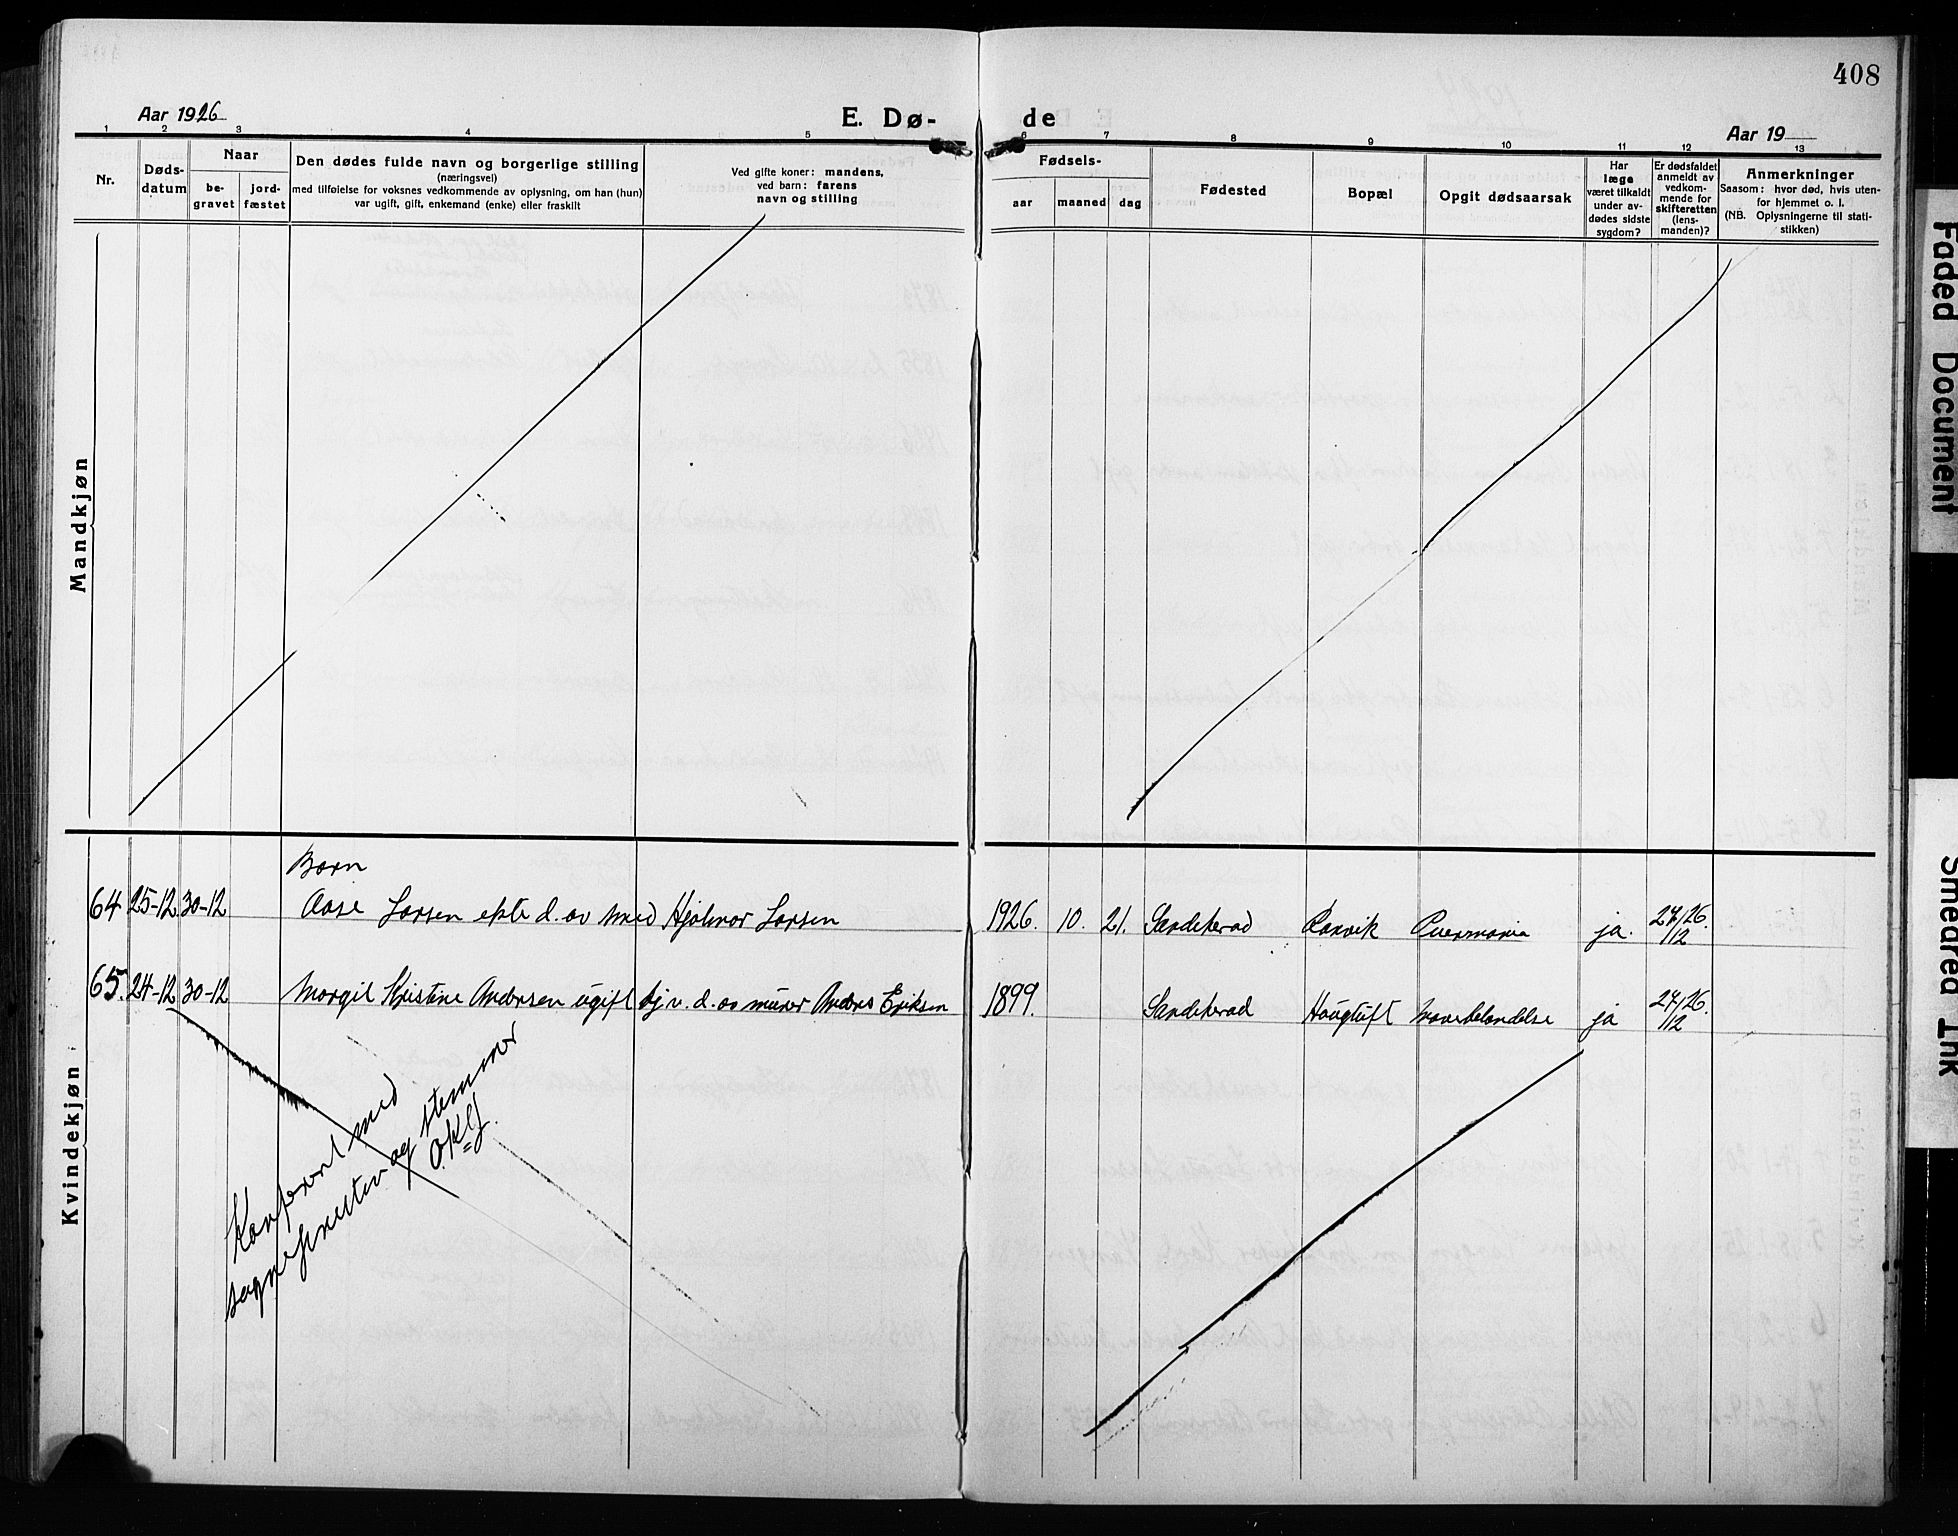 408
Aar 1926
E. Dø-
de
Aar 19
1 2 3 4 5 6 7 8 9 10 11 12 13
Nr.
Døds-
datum
Naar
be-
gravet
jord-
fæstet
Den dødes fulde navn og borgerlige stilling
(næringsvei)
med tilføielse for voksnes vedkommende av oplysning, om han (hun)
var ugift, gift, enkemand (enke) eller fraskilt
Ved gifte koner: mandens,
ved barn: farens
navn og stilling
Fødsels-
aar
maaned
dag
Fødested
Bopæl
Opgit dødsaarsak
Har
læge
været tilkaldt
under av-
dødes sidste
sygdom?
Er dødsfaldet
anmeldt av
vedkom-
mende for
skifteretten
(lens-
manden)?
Anmerkninger
Saasom: hvor død, hvis uten-
for hjemmet o. l.
(NB. Oplysningerne til stati-
stikken)
Mandkjøn
Kvindekjøn
Barn
64 25-12 30-12 Aase Larsen ekte d. av Hjalmar Larsen 1926. 10. 21. Sandeherad Ranvik ja. 24/12 26.
65. 24-12 30-12 Margit Kristine Andersen ugift hj. v. d. av murer Anders Eriksen 1899. Sandeherad Haugtuft ja 24/12 26.
Konferert med
sognepresten og stemmer
Faded Document
Smeared Ink